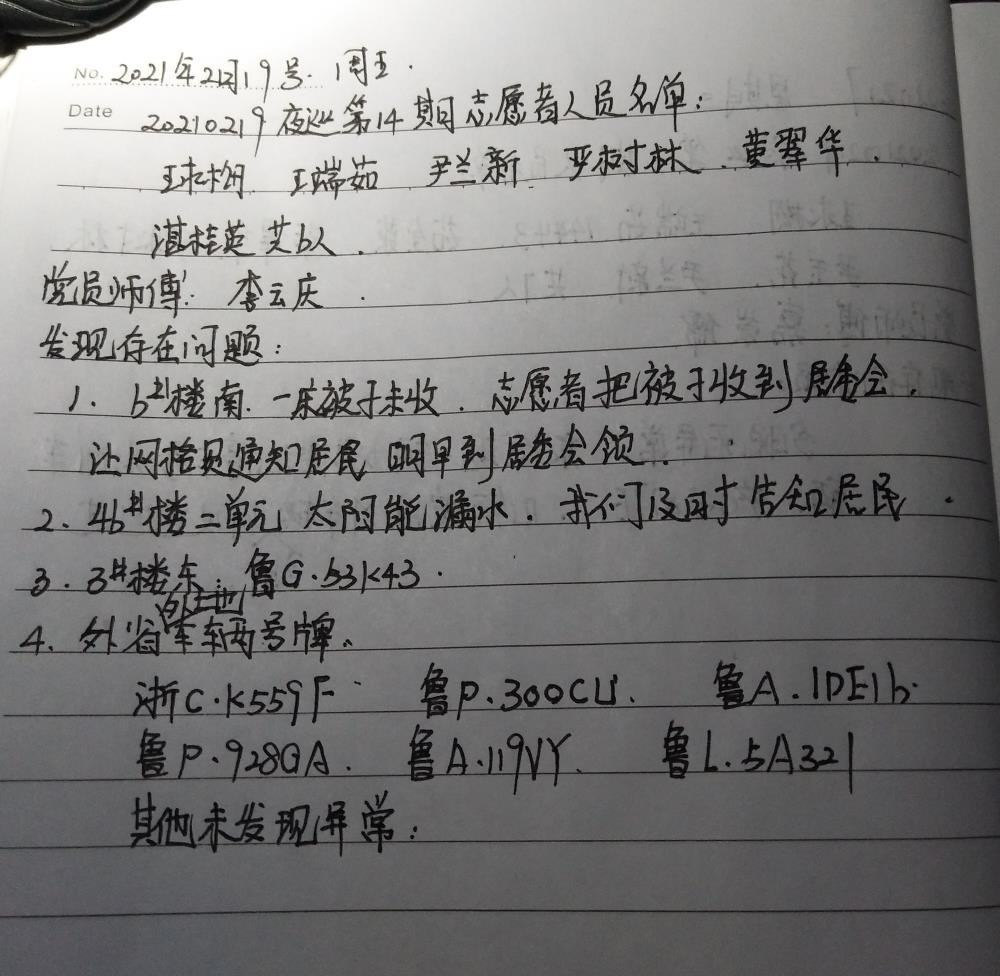 No. 2021年2月19号. 周五.
Date 20210219夜巡第14期志愿者人员名单:
王端茹 尹兰新 严树林. 黄翠华.
湛桂英 共6人.
党员师傅: 李云庆.
发现存在问题:
1. 6#楼南. 一床被子未收. 志愿者把被子收到居委会.
让网格员通知居民 明早到居委会领.
2. 46#楼二单元 太阳能漏水. 我们及时告知居民.
3. 3#楼东: 鲁G.53K43.
4. 外省外地车辆号牌.
浙C.K559F 鲁P.300CU. 鲁A.1DE16.
鲁P.928GA. 鲁A.119VY. 鲁L.5A321
其他未发现异常.